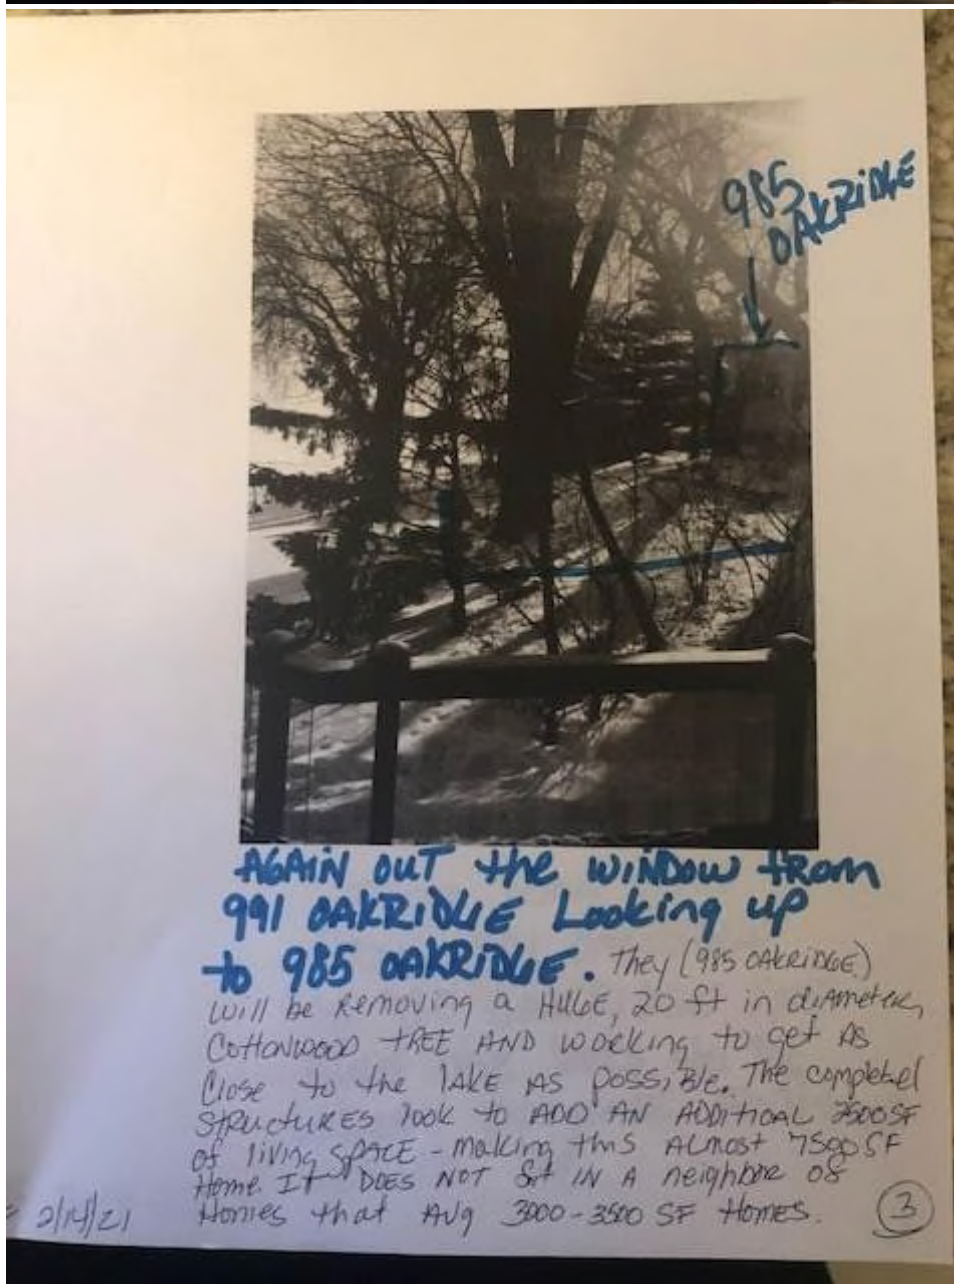 985
OAKRIDGE
AGAIN OUT the WINDOW from
991 OAKRIDGE Looking up
to 985 OAKRIDGE. They (985 OAKRIDGE)
will be Removing a HUGE, 20 ft in diAmeter,
COTTONWOOD TREE AND working to get AS
Close to the lAKE AS possiBle. The completed
STRUCTURES look to ADD AN ADDiTioAl 2500 SF
of living SPACE - making this Almost 7500 SF
Home. IT DOES NOT Set IN A neighbor of
2/14/21 Homes that Avg 3000-3500 SF Homes. 3